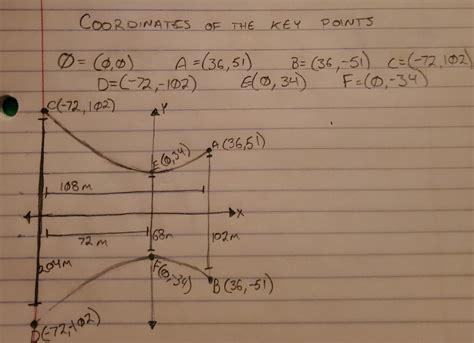 COORDINATES OF THE KEY POINTS
Ø = (Ø,Ø) A = (36,51) B = (36,-51) C = (-72,1Ø2)
D = (-72,-1Ø2) E(Ø,34) F = (Ø,-34)
C(-72,1Ø2) Y
E(Ø,34) A(36,51)
108m
X
72m 68m 102m
204m F(Ø,-34) B(36,-51)
D(-72,-1Ø2)